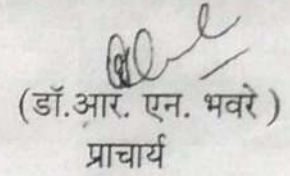 (डॉ.आर. एन. भवरे )
प्राचार्य